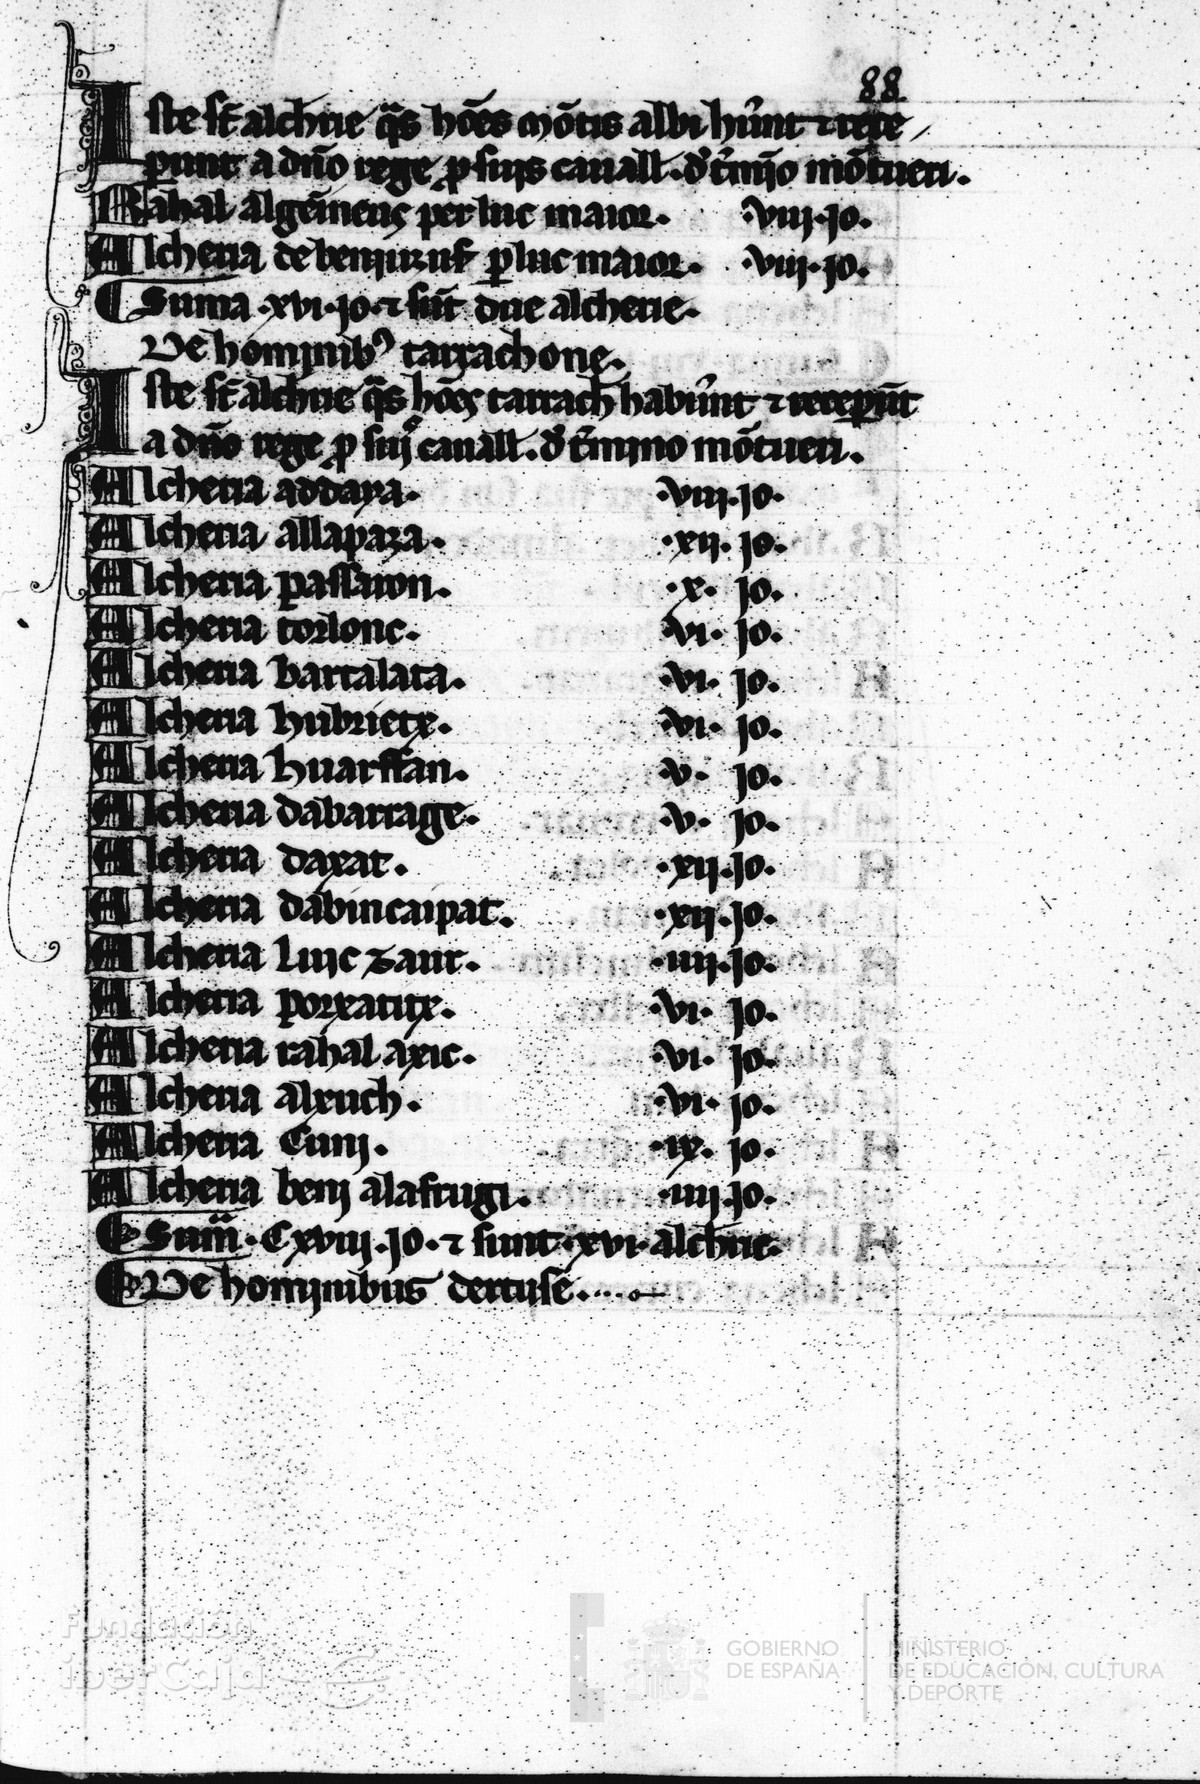 88
Iste st̄ alcħie q̄s hōes mōtis albi hūnt ⁊ rece
punt a dn̄o rege ꝓ suis cauall. đ t̄mīo mōtueri.
Rahal algem̄enç per luc maior. .viij.jo.
Alcheria de beniuzuf ꝑ luc maior. .viij.jo.
Suma .xvi.jo. ⁊ sūt due alcherie.
De hominibꝰ tarrachone.
Iste st̄ alcħie q̄s hōes tarrach̄ habūnt ⁊ receperūt
a dn̄o rege ꝓ suis cauall. đ t̄mino mōtueri.
Alcheria addaya. .viij.jo.
Alcheria allapaza. .xij. jo.
Alcheria passaron. .x. jo.
Alcheria torlonc. .vi. jo.
Alcheria bartalata. .vi. jo.
Alcheria hubrietx. .vi. jo.
Alcheria huarffan. .v. jo.
Alcheria dabarrage. .v. jo.
Alcheria daxat. .xij.jo.
Alcheria dabincaipat. .xij.jo.
Alcheria Luic zaut. .iiij.jo.
Alcheria porxatitx. .vi. jo.
Alcheria rahal axic. .vi. jo.
Alcheria alxuch. .vi. jo.
Alcheria Cunj. .ix. jo.
Alcheria benj alafrugi. .iiij.jo.
Sum̄ .Cxviij.jo. ⁊ sunt .xvi. alcħie.
De hominibus dertuse.
Fundación
iberCaja
GOBIERNO
DE ESPAÑA
MINISTERIO
DE EDUCACIÓN, CULTURA
Y DEPORTE